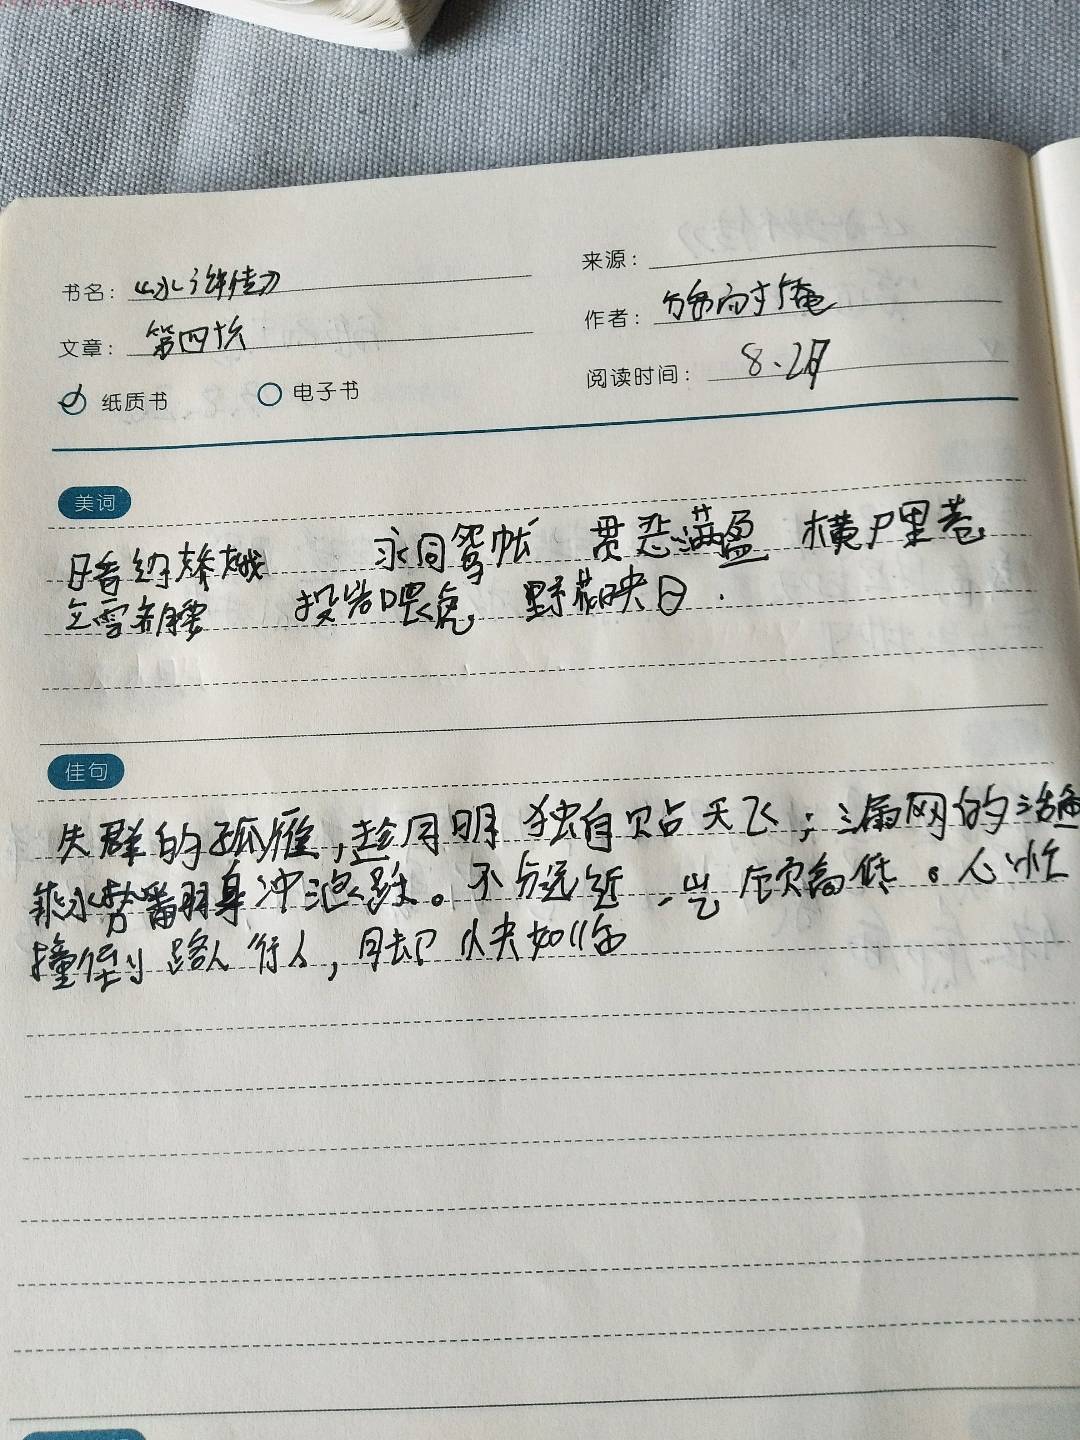 书名：《水浒传》
来源：
文章：第四次
作者：施耐庵
纸质书 电子书
阅读时间：8.2日
美词
暗约 永同鸳帐 贯恶满盈 横尸里巷
立雪齐腰 投岩喂虎 野花映日.
佳句
失群的孤雁，趁月明独自贴天飞；漏网的活鱼
乘水势翻身冲浪跃。不分远近，岂顾高低。心忙
撞倒路人行人，脚快如临